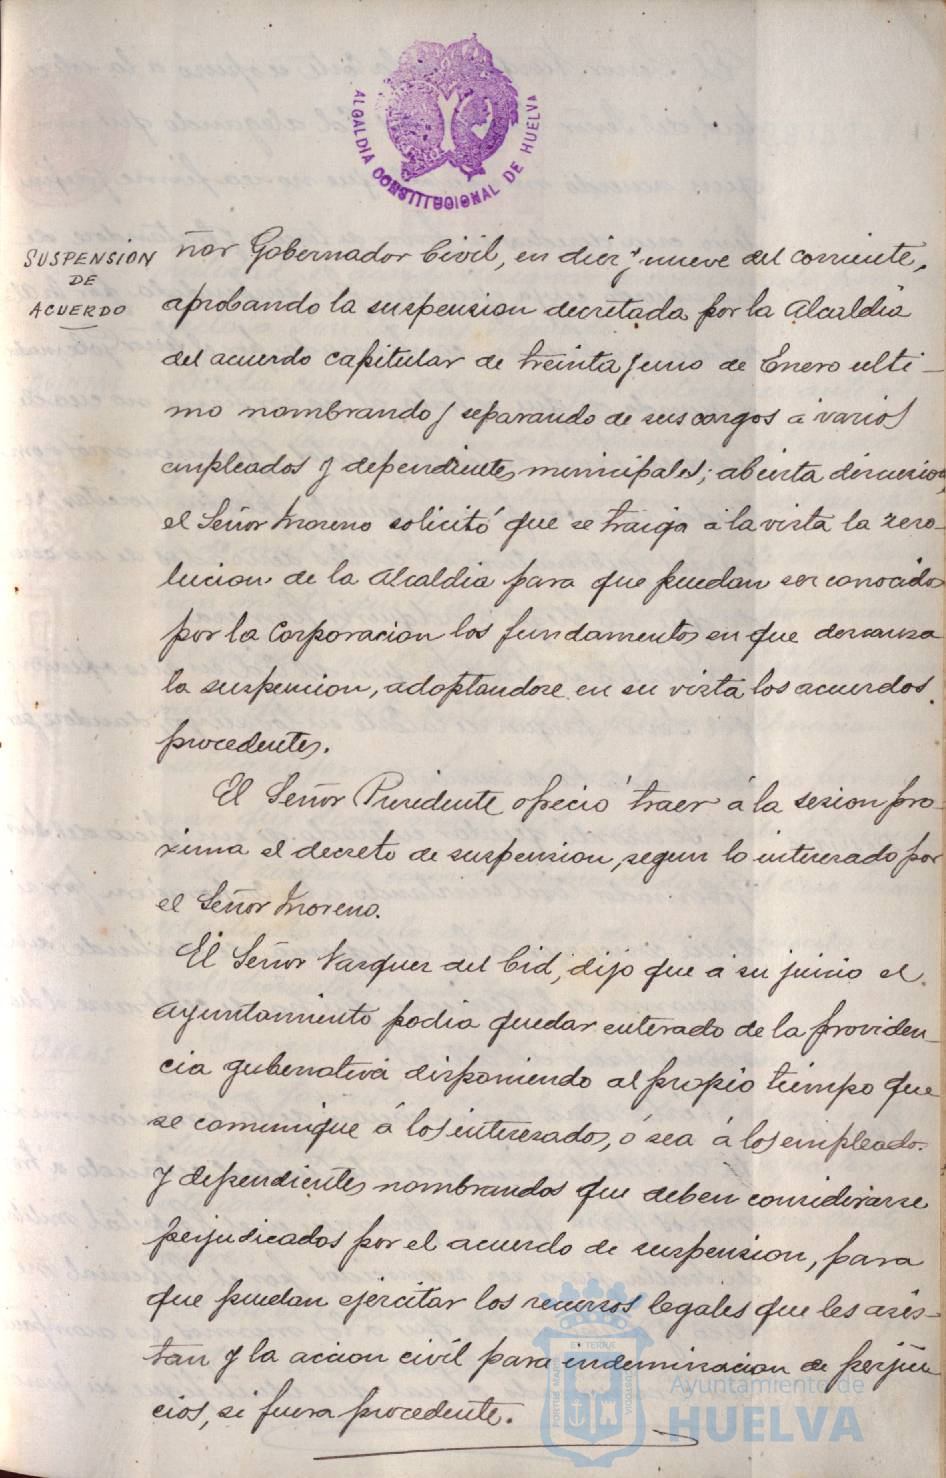 ALCALDIA CONSTITUCIONAL DE HUELVA
SUSPENSIÓN
DE
ACUERDO
ñor Gobernador Civil, en diez y nueve del corriente,
aprobando la suspension decretada por la Alcaldia
del acuerdo capitular de treinta y uno de Enero ulti-
mo nombrando y separando de sus cargos á varios
empleados y dependientes municipales; abierta discusion,
el Señor Moreno solicitó que se traiga á la vista la reso-
lucion de la Alcaldia para que puedan ser conocidos
por la Corporacion los fundamentos en que descansa
la suspension, adoptandose en su vista los acuerdos
procedentes.
El Señor Presidente ofreció traer á la sesion pro-
xima el decreto de suspension, segun lo interesado por
el Señor Moreno.
El Señor Vazquez del Cid, dijo que á su juicio el
Ayuntamiento podia quedar enterado de la providen-
cia gubernativa disponiendo al propio tiempo que
se comunique á los interesados, ó sea á los empleados
y dependientes nombrandos que deben considerarse
perjudicados por el acuerdo de suspension, para
que puedan ejercitar los recursos legales que les asis-
tan y la accion civil para indemnizacion de perjui-
cios, si fuera procedente.
Ayuntamiento de
HUELVA